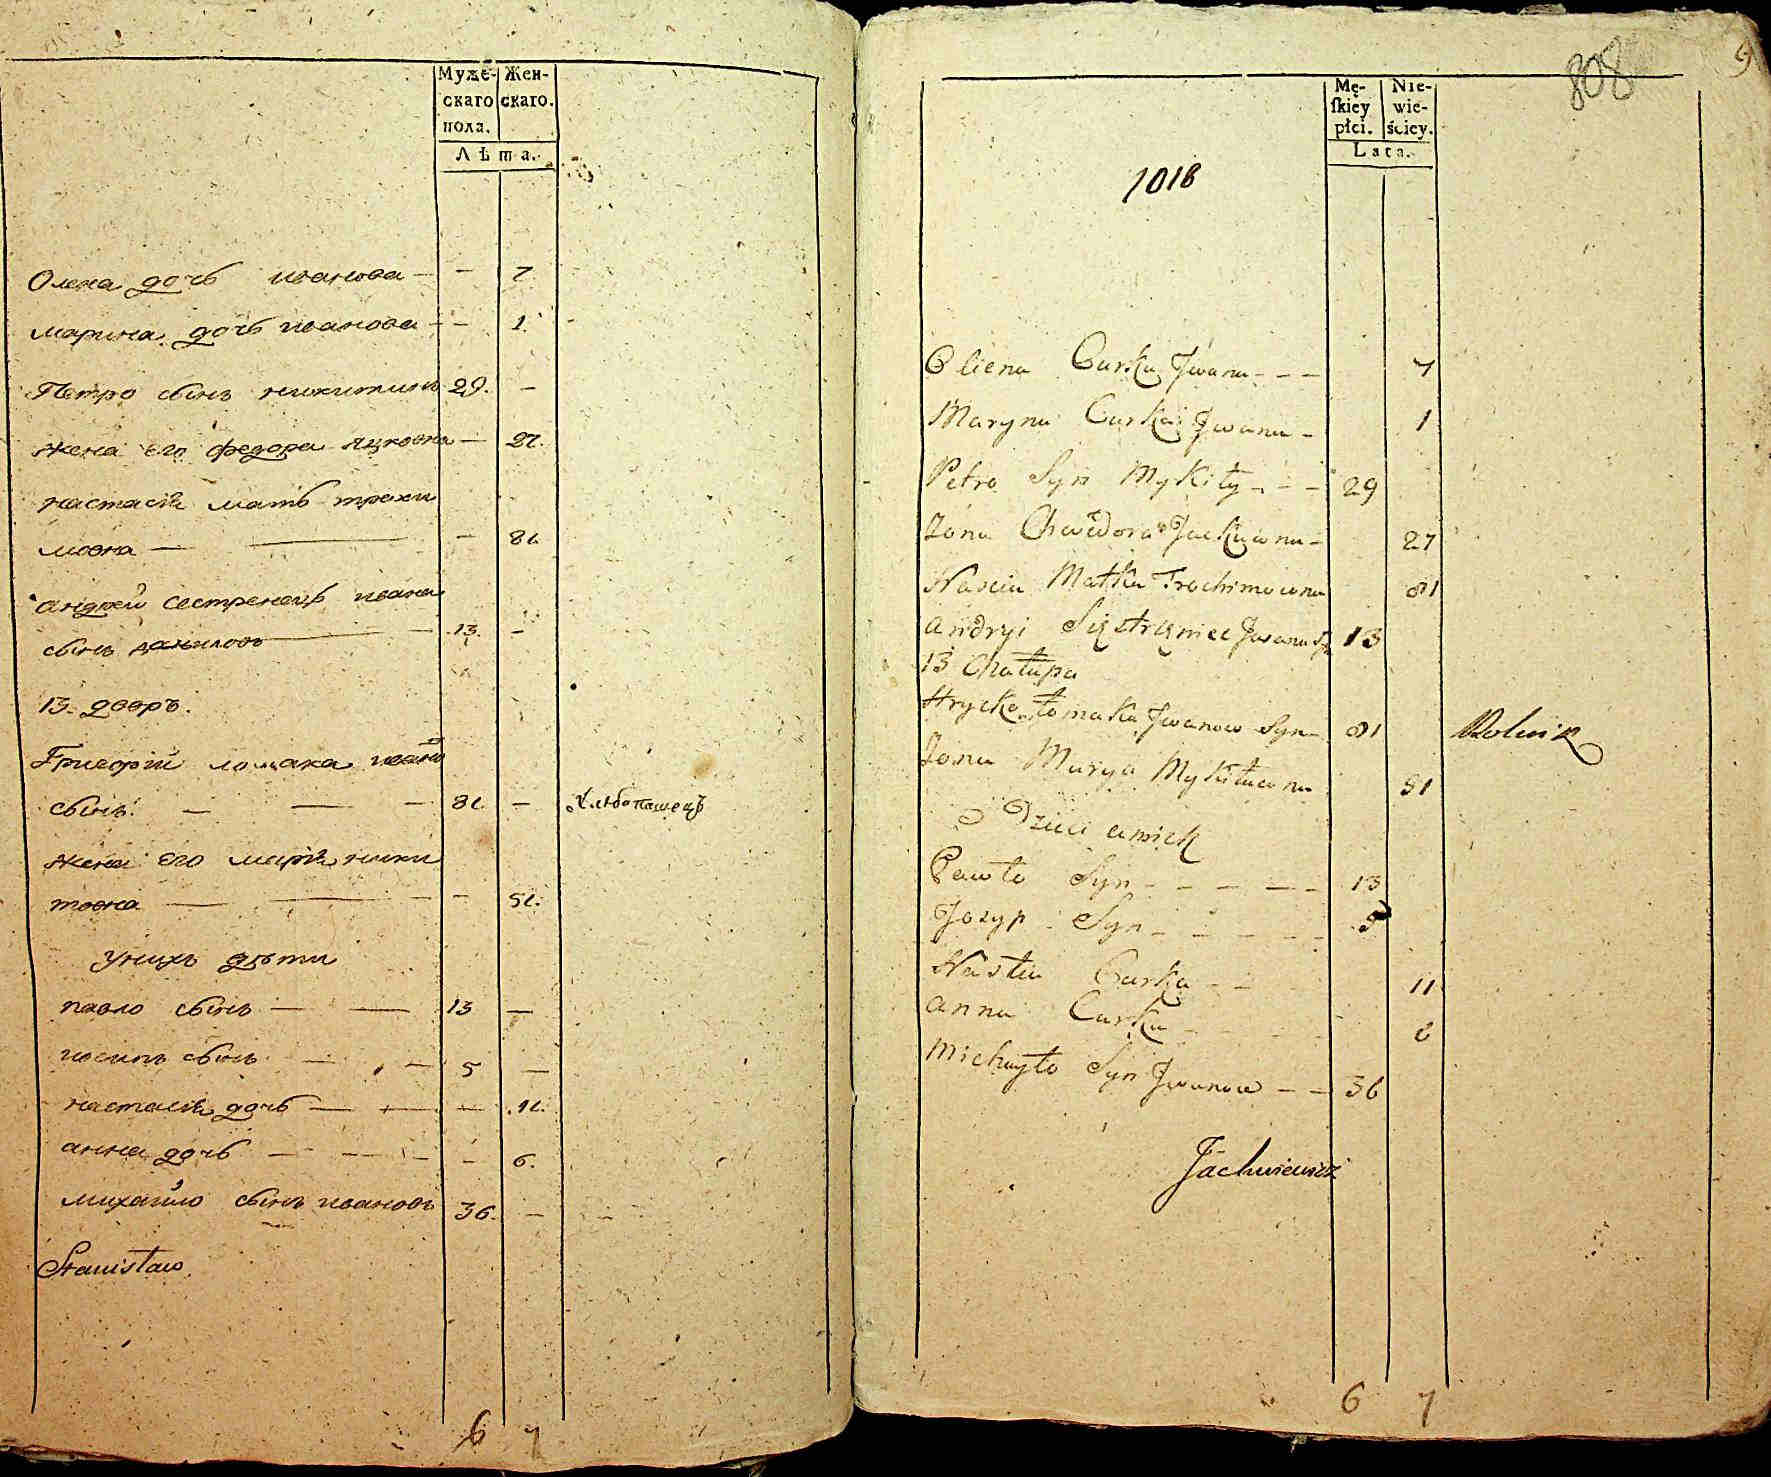 Муже- Жен-
скаго скаго.
пола.
Лѣта.
Олена дочь иванова — — 7
марина дочь иванова — — 1.
Петро сынъ никитинъ 29. —
жена его федора яцковна — 27.
настасія мать трохи
мовна — — — 81
андрей сестренецъ ивана
сынъ даниловъ — 13. —
13. дворъ.
Григорій ломака ивано
сынъ. — — — 81 — хлѣбопашецъ
жена его марія ники
товна — — — 51.
у нихъ дѣти
павло сынъ — — 13 —
иосипъ сынъ — — 5 —
настасія дочь — — — 11.
анна дочь — — — — 6.
михайло сынъ ивановъ 36. —
Stanisław
6 7
808 9
Mę- Nie-
skiey wie-
płci. ściey.
Lata.
1018
Oliena Curka Jwana - - - 7
Maryna Curka Jwana - 1
Petro Syn Mykity - - - 29
Żona Chwedora Jackowna - 27
Nascia Matka Trochimowna 81
Andryi Siestrzeniec Jwana Syn 13
13 Chałupa
Hrycko Łomaka Jwanow Syn - 81 Rolnik
Żona Marya Mykitowna 51
Dzieci
Pawło Syn - - - - - 13
Jozyp Syn - - - - - 5
Nastia Curka - - 11
Anna Curka - - - - 6
Michayło Syn Jwanow - - 36
Jachniewicz
6 7